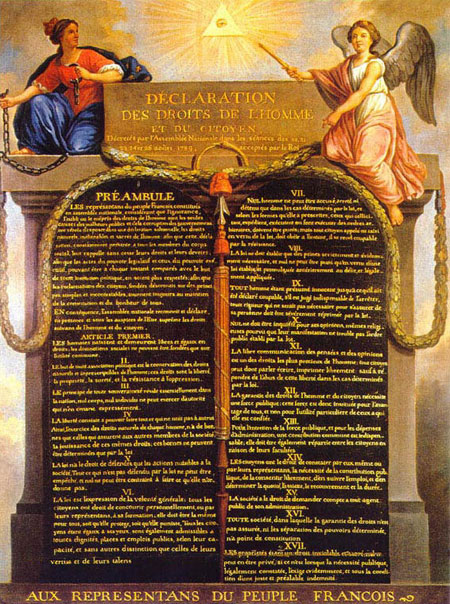 DÉCLARATION
DES DROITS DE L'HOMME
ET DU CITOYEN
Décretés par l'Assemblée Nationale dans les séances des 20, 21
23, 24 et 26 août 1789, acceptés par le Roi
PRÉAMBULE
LES représentans du peuple Francois, constitués
en assemblée nationale, considérant que l'ignorance,
l'oubli ou le mépris des droits de l'homme sont les seules
causes des malheurs publics et de la corruption des gouvernemens
ont résolu d'exposer dans une déclaration solemnelle, les droits
naturels, inaliénables et sacrés de l'homme; afin que cette décla-
ration, constamment présente a tous les membres du corps
social, leur rappelle sans cesse leurs droits et leurs devoirs;
afin que les actes du pouvoir législatif et ceux du pouvoir exé-
cutif, pouvant être a chaque instant comparés avec le but
de toute institution politique, en soient plus respectés; afin que
les réclamations des citoyens, fondées désormais sur des prinei-
pes simples et incontestables, tournent toujours au maintien
de la constitution et du bonheur de tous.
EN conséquence, l'assemblée nationale reconnoit et déclare,
en présence et sous les auspices de l'Etre suprême les droits
suivans de l'homme et du citoyen.
ARTICLE PREMIER.
LES hommes naissent et demeurent libres et égaux en
droits; les distinctions sociales ne peuvent être fondées que sur
l'utilité commune.
II.
LE but de toute association politique est la conservation des droits
naturels et imprescriptibles de l'homme; ces droits sont la liberté,
la propriété, la sureté, et la résistance à l'oppression.
III.
LE principe de toute souveraineté réside essentiellement dans
la nation, nul corps, nul individu ne peut exercer d'autorité
qui n'en émane expressément.
IV.
LA liberté consiste a pouvoir faire tout ce qui ne nuit pas à autrui
Ainsi, l'exercice des droits naturels de chaque homme, n'a de bor-
nes que celles qui assurent aux autres membres de la société
la jouissance de ces mêmes droits; ces bornes ne peuvent
être déterminées que par la loi
V.
LA loi n'a le droit de défendre que les actions nuisibles à la
société. Tout ce qui n'est pas défendu par la loi ne peut être
empêché, et nul ne peut être contraint à faire ce qu'elle n'or-
donne pas.
VI.
LA loi est l'expression de la volonté générale; tous les
citoyens ont droit de concourir personnellement, ou par
leurs représentans, à sa formation; elle doit être la même
pour tous, soit qu'elle protege, soit qu'elle punisse. Tous les ci-
toyens étant égaux à ses yeux, sont également admissibles à
toutes dignités, places et emplois publics, selon leur ca-
pacité, et sans autres distinction que celles de leurs
vertus et de leurs talens
VII.
NUL homme ne peut être accusé, arreté, ni
détenu que dans les cas déterminés par la loi, et
selon les formes qu'elle a prescrites, ceux qui sollici-
tent, expédient, exécutent ou font exécuter des ordres ar-
bitraires, doivent être punis; mais tout citoyen appelé ou saisi
en vertu de la loi, doit obéir a l'instant, il se rend coupable
par la résistance.
VIII.
LA loi ne doit établir que des peines strictement et évidem-
ment nécessaires, et nul ne peut être puni qu'en vertu d'une
loi établie et promulguée antérieurement au délit, et légale-
ment appliquée.
IX.
TOUT homme étant présumé innocent jusqu'à ce qu'il ait
été déclaré coupable, s'il est jugé indispensable de l'arrêter,
toute rigueur qui ne seroit pas nécessaire pour s'assurer de
sa personne doit être sévèrement réprimée par la loi.
X.
NUL ne doit être inquiété pour ses opinions, mêmes religi-
euses pourvu que leur manifestation ne trouble pas l'ordre
public établi par la loi.
XI.
LA libre communication des pensées et des opinions
est un des droits les plus précieux de l'homme; tout citoyen
peut donc parler, écrire, imprimer librement: sauf à ré-
pondre de l'abus de cette liberté dans les cas déterminés
par la loi.
XII.
LA garantie des droits de l'homme et du citoyen nécessite
une force publique; cette force est donc instituée pour l'avan-
tage de tous, et non pour l'utilité particuliere de ceux a qui
elle est confiée.
XIII.
POUR l'entretien de la force publique, et pour les dépenses
d'administration, une contribution commune est indispen-
sable; elle doit être également répartie entre les citoyens en
raison de leurs facultées.
XIV.
LES citoyens ont le droit de constater par eux même ou
par leurs représentans, la nécessité de la contribution pub-
lique, de la consentir librement, d'en suivre l'emploi, et d'en
déterminer la quotité, l'assiette, le recouvrement et la durée.
XV.
LA société a le droit de demander compte a tout agent
public de son administration.
XVI.
TOUTE société, dans laquelle la garantie des droits n'est
pas assurée, ni la séparation des pouvoirs déterminée,
n'a point de constitution
XVII.
LES propriétés étant un droit inviolable et sacré, nul ne
peut en être privé, si ce n'est lorsque la nécessité publique,
légalement constatée, l'exige évidemment, et sous la condi-
tion d'une juste et préalable indemnité.
AUX REPRESENTANS DU PEUPLE FRANCOIS